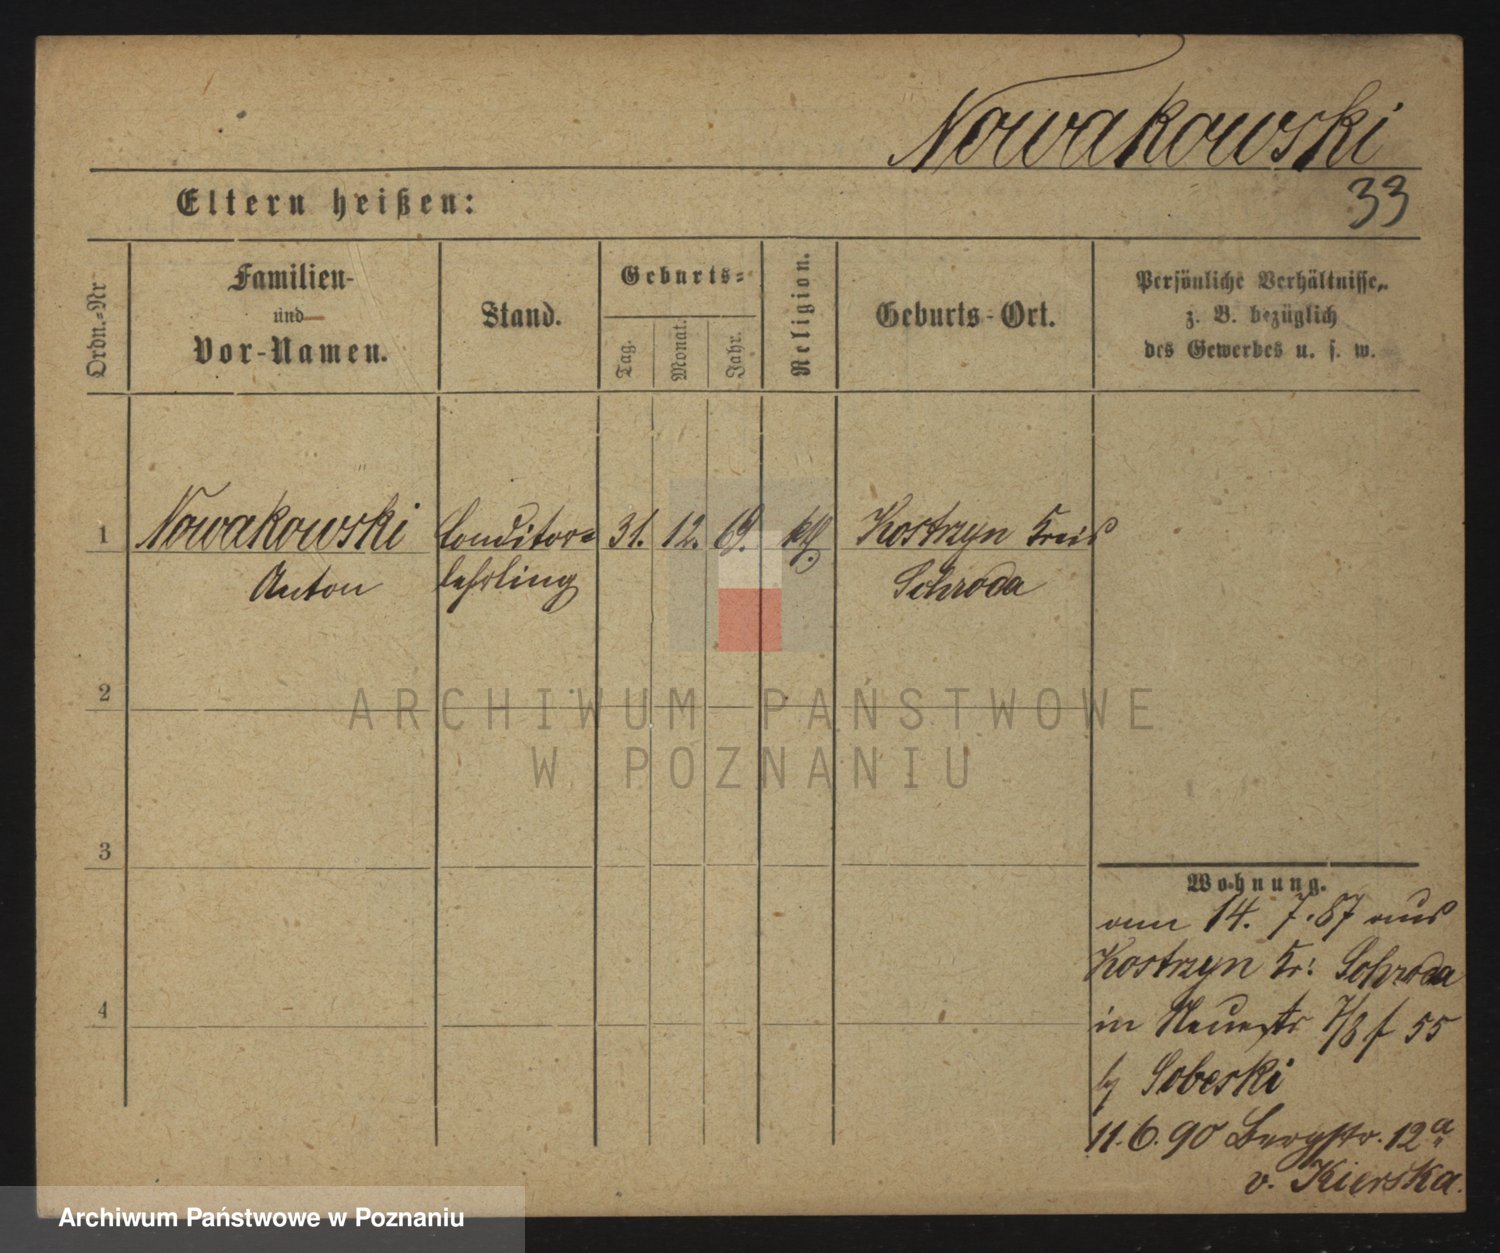 Nowakowski
33
Eltern heißen:
Ordn.-Nr
Familien-
und
Vor-Namen.
Stand.
Geburts-
Tag.
Monat.
Jahr.
Religion.
Geburts-Ort.
Persönliche Verhältnisse,
z. B. bezüglich
des Gewerbes u. s. w.
1
Nowakowski
Anton
Conditor-
lehrling
31.
12.
69.
kth.
Kostrzyn Kreis
Schroda
2
3
4
Wohnung.
14. 7. 87 aus
Kostrzyn Kr: Schroda
in Neuestr 7/8 f 55
b Sobeski
11.6.90 Bergstr. 12a
v. Kierska.
ARCHIWUM PAŃSTWOWE
W POZNANIU
Archiwum Państwowe w Poznaniu